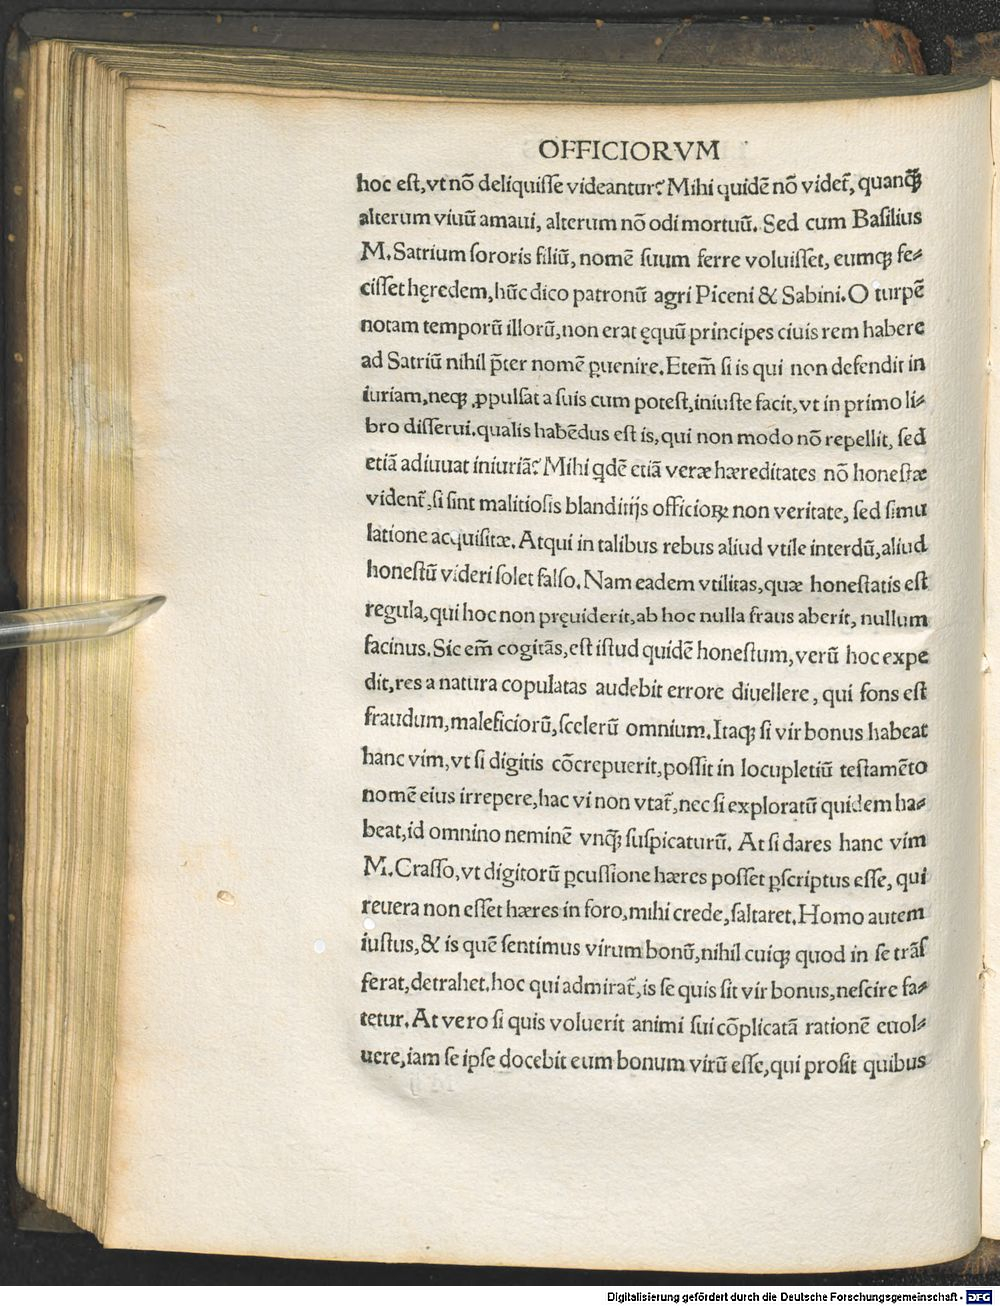 OFFICIORVM
hoc est,vt nõ deliquisse videantur? Mihi quidẽ nõ videt̃, quanq̃
alterum viuũ amaui, alterum nõ odi mortuũ. Sed cum Basilius
M. Satrium sororis filiũ, nomẽ suum ferre voluisset, eumqꝫ fe⸗
cisset hęredem, hũc dico patronũ agri Piceni & Sabini. O turpẽ
notam temporũ illorũ, non erat ęquũ principes ciuis rem habere
ad Satriũ nihil p̃ter nomẽ ꝑuenire. Etem̃ si is qui non defendit in
iuriam, neqꝫ ꝓpulsat a suis cum potest, iniuste facit, vt in primo li⸗
bro disserui. qualis habẽdus est is, qui non modo nõ repellit, sed
etiã adiuuat iniuriã? Mihi qdẽ etiã veræ hæreditates nõ honestæ
vident̃, si sint malitiosis blanditijs officioꝝ non veritate, sed simu
latione acquisitæ. Atqui in talibus rebus aliud vtile interdũ, aliud
honestũ videri solet falso. Nam eadem vtilitas, quæ honestatis est
regula, qui hoc non pręuiderit, ab hoc nulla fraus aberit, nullum
facinus. Sic em̃ cogitãs, est istud quidẽ honestum, verũ hoc expe
dit, res a natura copulatas audebit errore diuellere, qui fons est
fraudum, maleficiorũ, scelerũ omnium. Itaqꝫ si vir bonus habeat
hanc vim, vt si digitis cõcrepuerit, possit in locupletiũ testamẽto
nomẽ eius irrepere, hac vi non vtat̃, nec si exploratũ quidem ha⸗
beat, id omnino neminẽ vnq̃ suspicaturũ. At si dares hanc vim
M. Crasso, vt digitorũ ꝑcussione hæres posset ꝑscriptus esse, qui
reuera non esset hæres in foro, mihi crede, saltaret. Homo autem
iustus, & is quẽ sentimus virum bonũ, nihil cuiqꝫ quod in se trãs
ferat, detrahet. hoc qui admirat̃, is se quis sit vir bonus, nescire fa⸗
tetur. At vero si quis voluerit animi sui cõplicatã rationẽ euol⸗
uere, iam se ipse docebit eum bonum virũ esse, qui prosit quibus
Digitalisierung gefördert durch die Deutsche Forschungsgemeinschaft - DFG